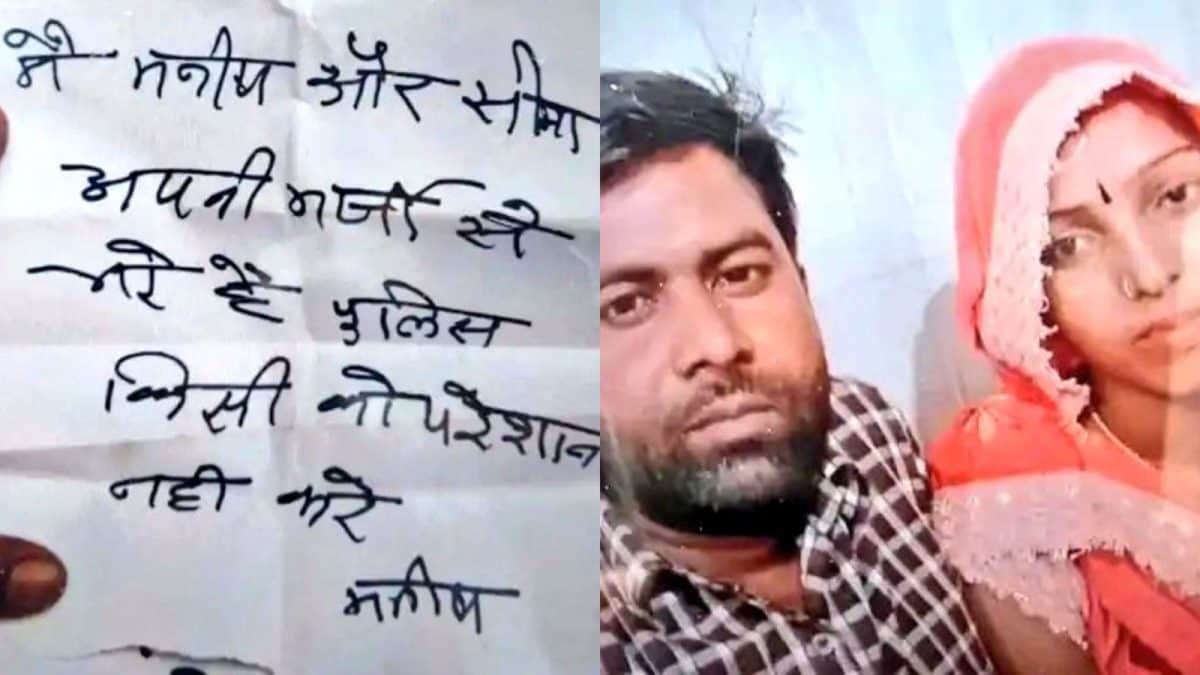 मै मनीष और सीमा
अपनी मर्जी से
मरे है पुलिस
किसी को परेशान
नही करे
मनीष